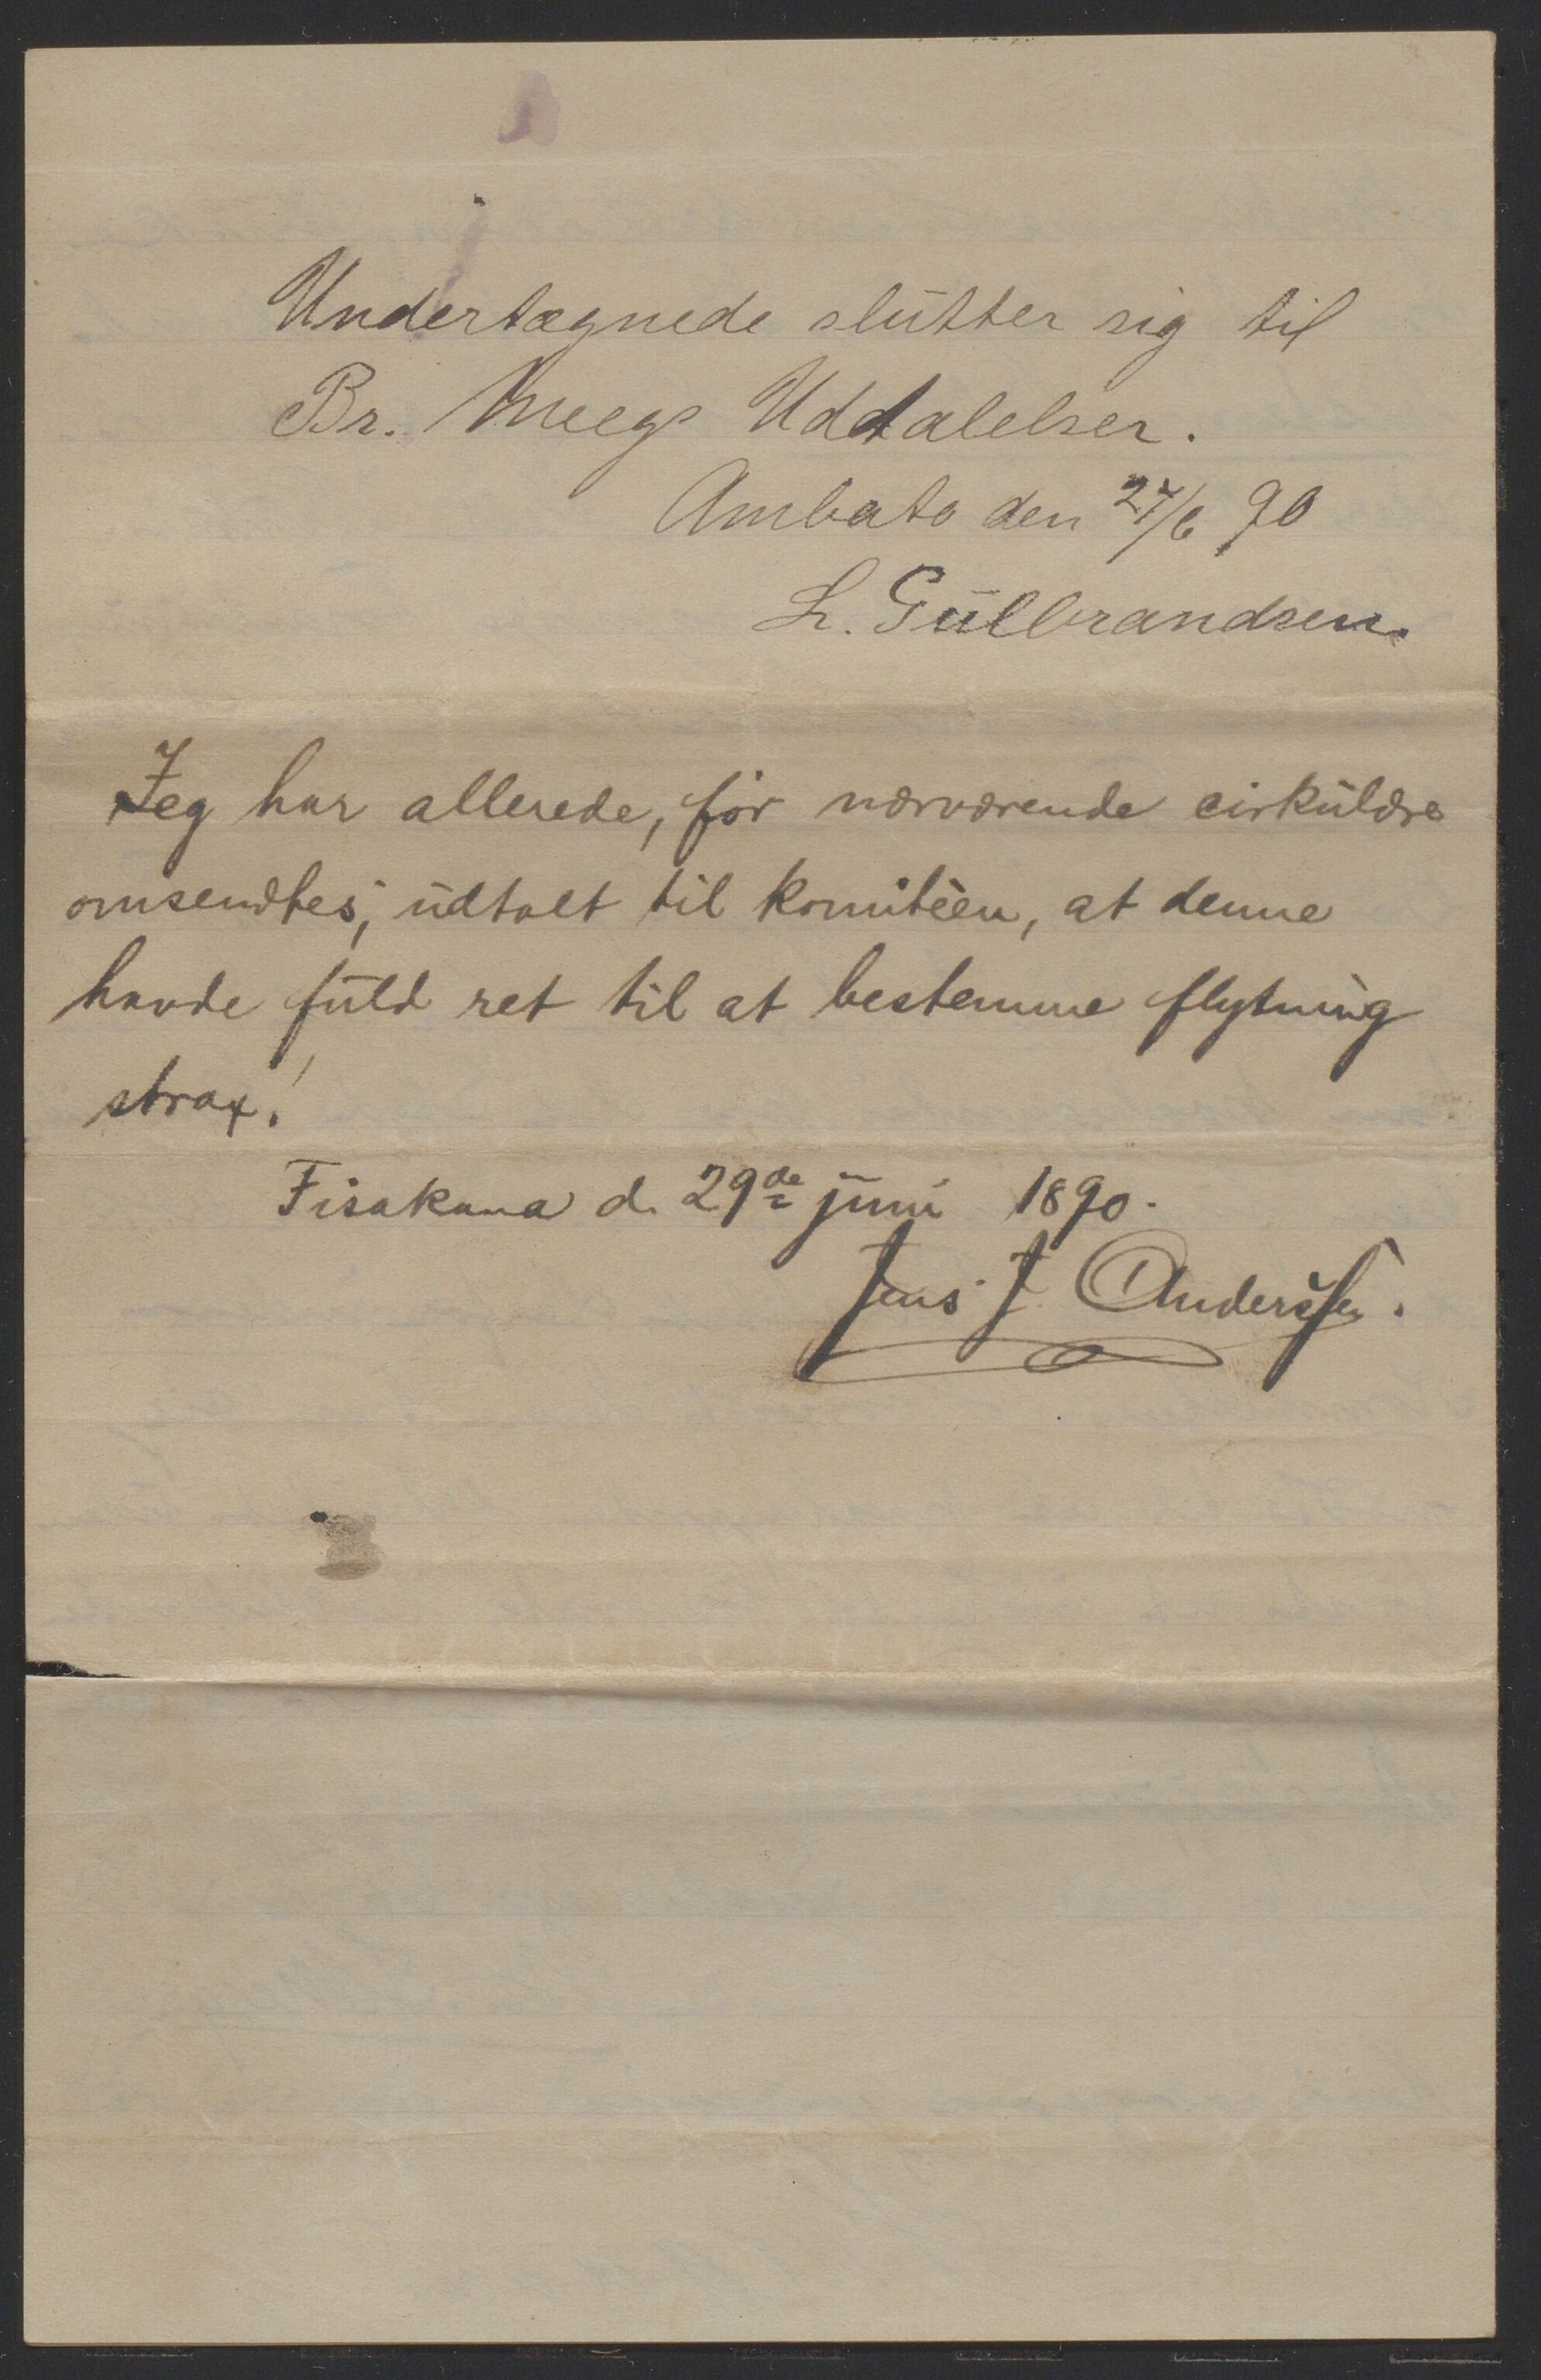 Undertegnede slutter sig til
Br. Meegs Uddalelser.
Ambato den 27/6 90
L. Gulbrandsen.
Jeg har allerede, før nærværende cirkulære
omsendtes, udtalt til komitéen, at denne
havde fuld ret til at bestemme flytning
strax!
Fisakana d. 29de juni 1890.
Jens J. Anderssen.